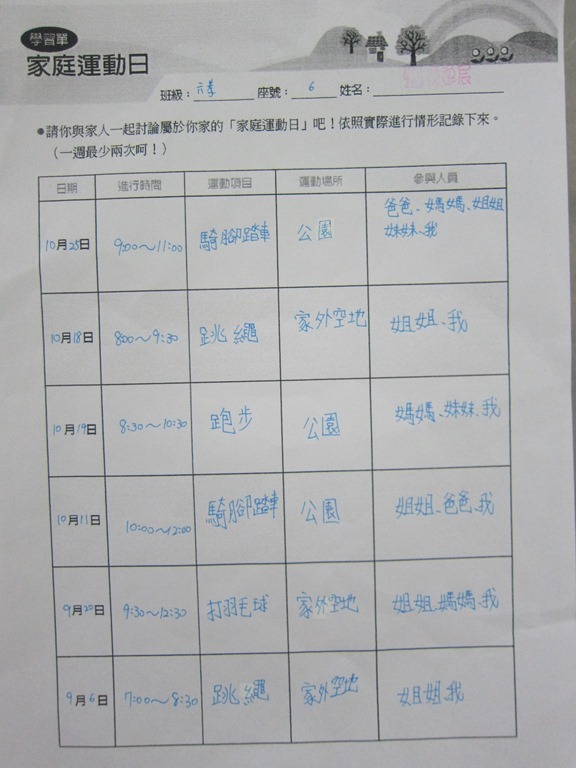 學習單
家庭運動日
班級：六孝 座號：6 姓名：
●請你與家人一起討論屬於你家的「家庭運動日」吧！依照實際進行情形記錄下來。
（一週最少兩次呵！）
日期 進行時間 運動項目 運動場所 參與人員
10月25日 9:00～11:00 騎腳踏車 公園 爸爸、媽媽、姐姐
妹妹、我
10月18日 8:00～9:30 跳繩 家外空地 姐姐、我
10月19日 8:30～10:30 跑步 公園 媽媽、妹妹、我
10月11日 10:00～12:00 騎腳踏車 公園 姐姐、爸爸、我
9月20日 9:30～12:30 打羽毛球 家外空地 姐姐、媽媽、我
9月6日 7:00～8:30 跳繩 家外空地 姐姐、我